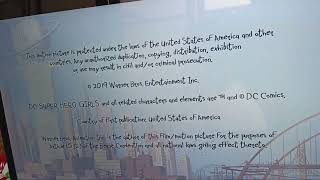 This motion picture is protected under the laws of the United States of America and other
countries. Any unauthorized duplication, copying, distribution, exhibition
or use may result in civil and/or criminal prosecution.
© 2019 Warner Bros. Entertainment Inc.
DC SUPER HERO GIRLS and all related characters and elements are ™ and © DC Comics.
Country of first publication: United States of America
Warner Bros. Animation Inc. is the author of this film/motion picture for the purposes of
Article 15 (2) of the Berne Convention and all national laws giving effect thereto.